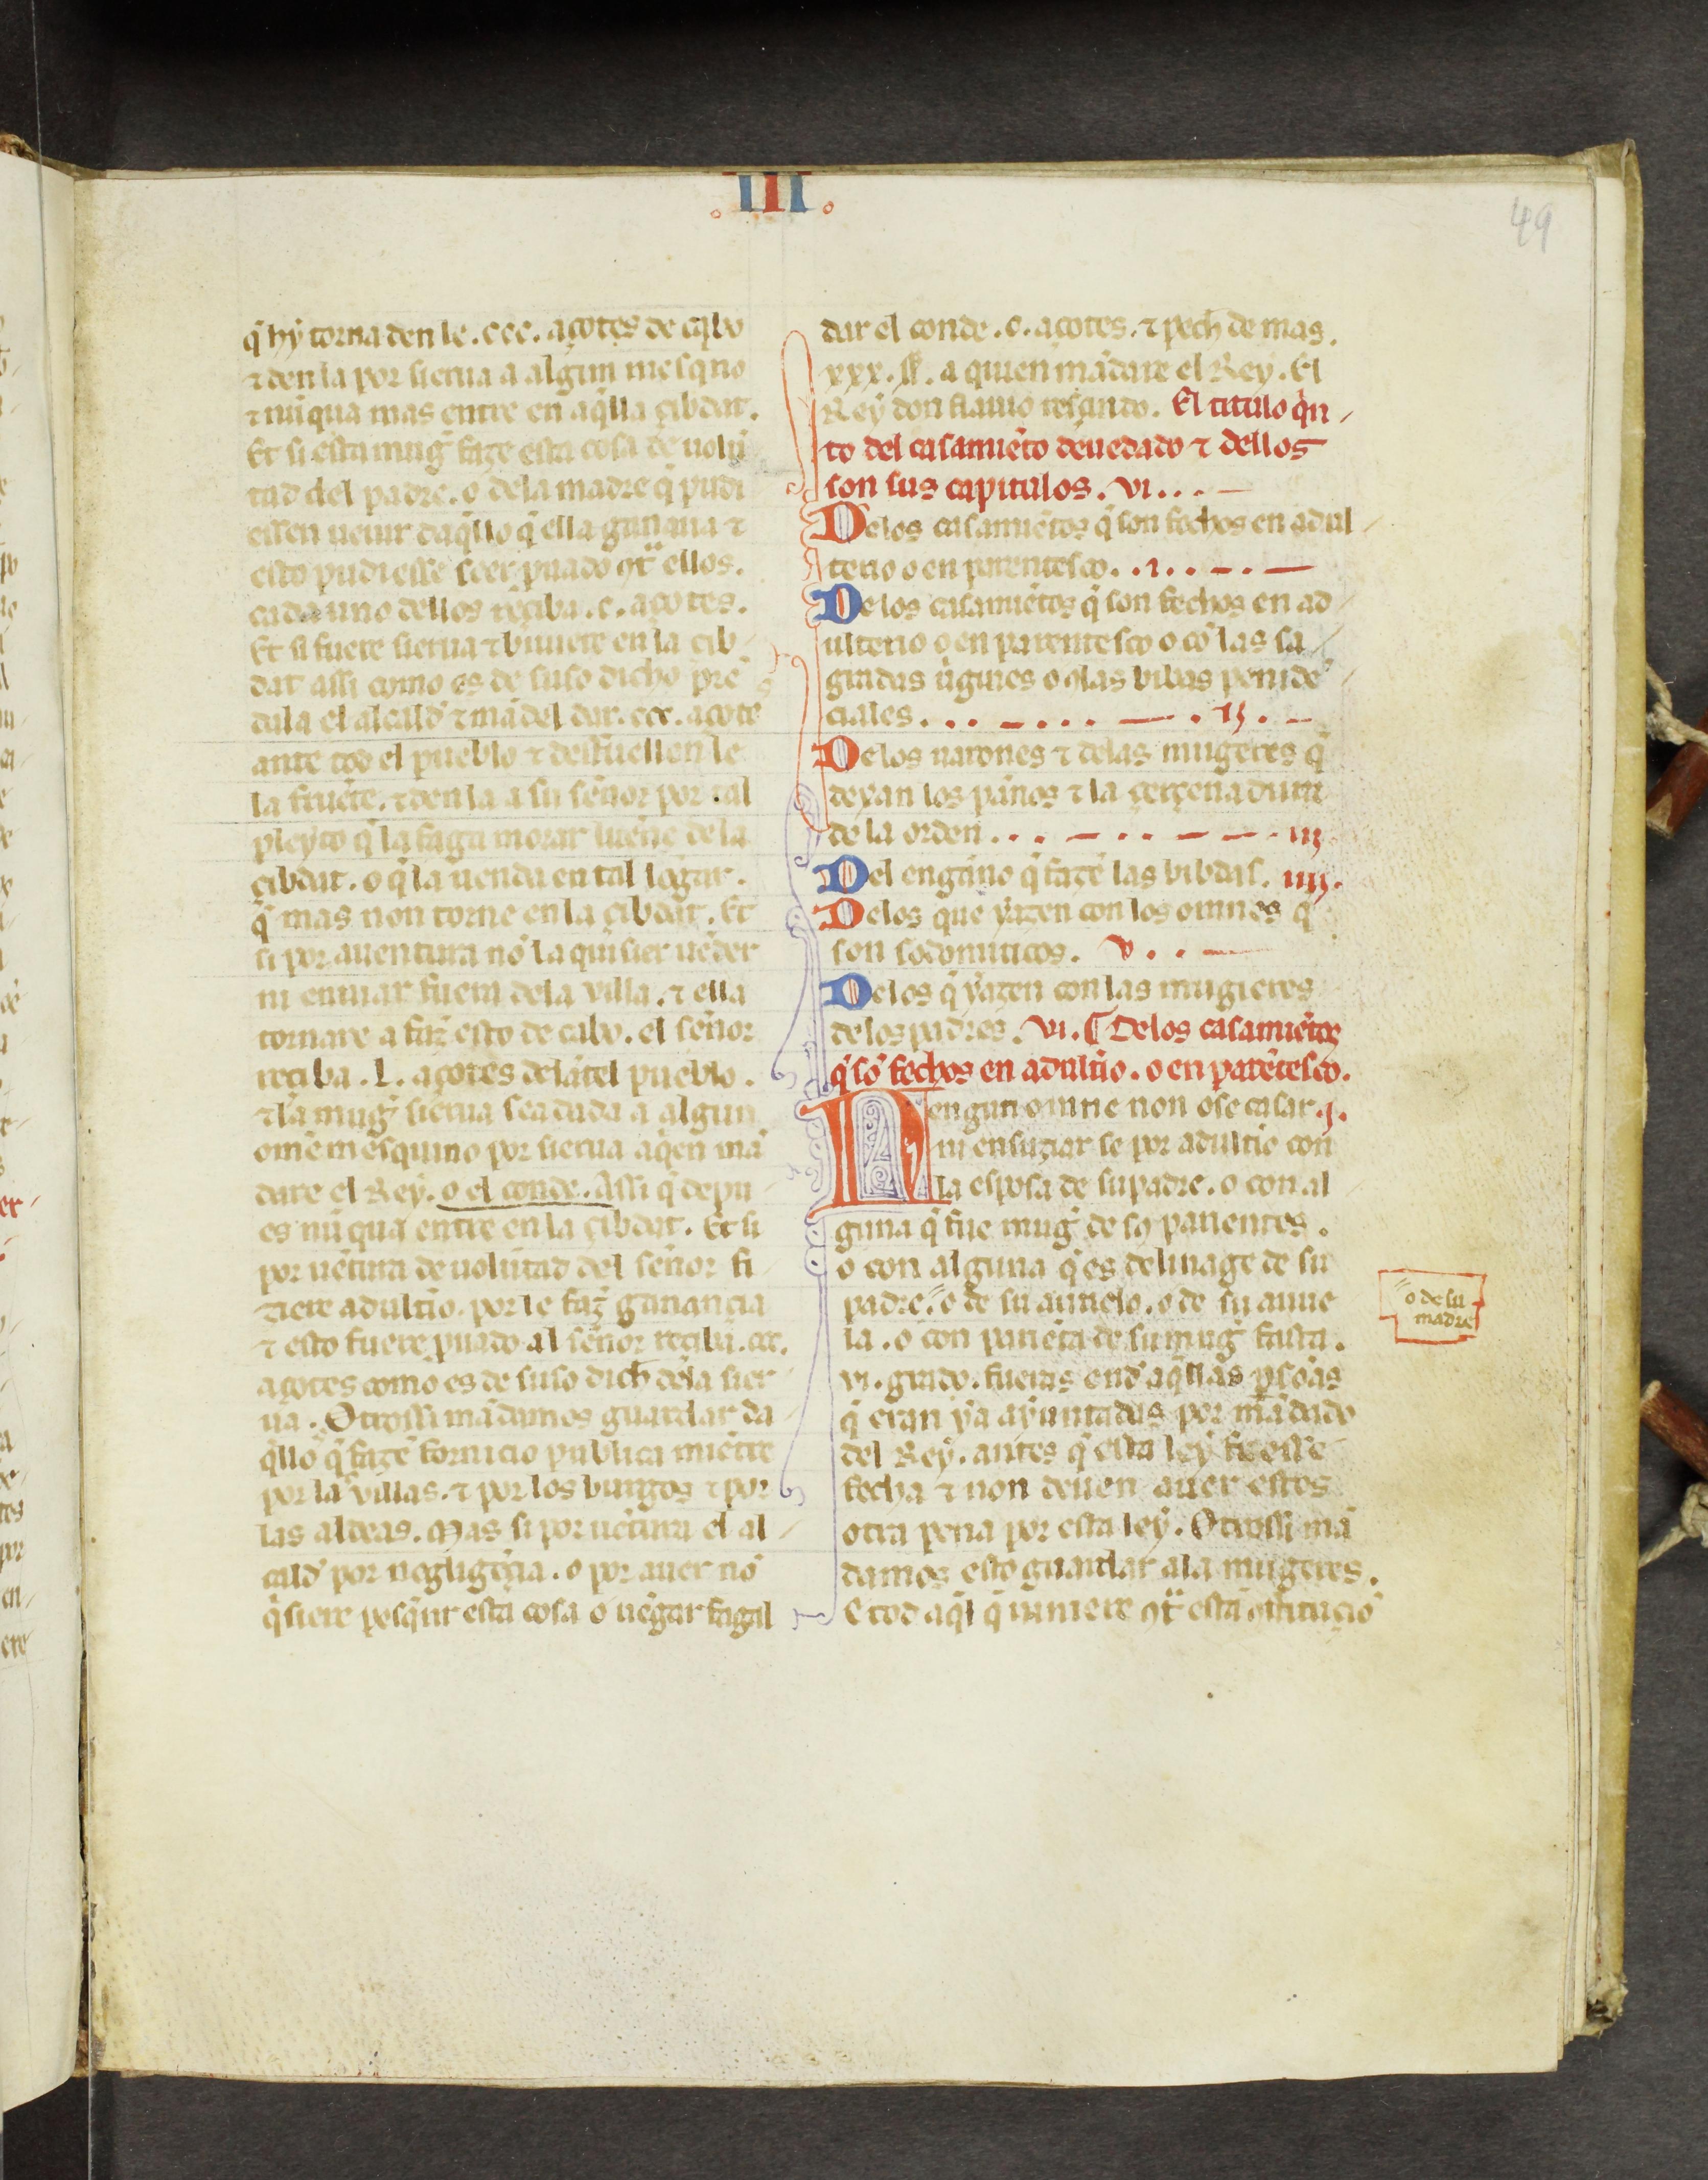 .III.
49
q̃ hy torna den le .ccc. açotes de cabo
⁊ den la por sierua a algun mesq̃no
⁊ nũqua mas entre en aq̃lla çibdat.
Et si esta mug̃ faze esta cosa de uolũ
tad del padre. o dela madre q̃ pudi
essen ueuir daq̃llo q̃ ella ganaua ⁊
esto pudiesse seer ꝓuado ꝯtͣ ellos.
cada uno dellos reçiba .c. açotes.
Et si fuere sierua ⁊ biuiere en la çib
dat assi como es de suso dicho prẽ
dala el alcald̃ ⁊ mãdel dar .ccc. açote
ante tod el pueblo ⁊ desfuellen le
la fruẽte. ⁊ den la a su señor por tal
pleyto q̃ la faga morar lueñe de la
çibdat. o q̃ la uenda en tal logar.
q̃ mas non torne en la çibdat. Et
si por auentura nõ la quisier uẽder
ni enuiar fuera dela villa. ⁊ ella
tornare a faz̃ esto de cabo. el señor
reçiba .L. açotes delãtel pueblo.
⁊ la mug̃ sierua sea dada a algun
omẽ mesquino por sierua aq̃en mã
dare el Rey. o el conde. Assi q̃ depu
es nũqua entre en la çibdat. Et si
por uẽtura de uolũtad del señor fi
ziere adult̃io. por le faz̃ ganançia
⁊ esto fuere ꝓuado al señor reçiba .ccc.
açotes como es de suso dich̃ dela sier
ua. Otrossi mãdamos guardar da
q̃llo q̃ fazẽ fornicio publica miẽtre
por las villas. ⁊ por los burgos ⁊ por
las aldeas. Mas si por uẽtura el al
cald̃ por negligẽçia. o por auer nõ
q̃siere pesq̃rir esta cosa o uẽgar fagal
dar el conde .c. açotes. ⁊ pech̃ de mas.
xxx. ss̃. a quien mãdare el Rey. El
Rey don flauio resçindo. El titulo q̃n
to del casamiẽto deuedado ⁊ dellos
son sus capitulos. vi...
Delos casamiẽtos q̃ son fechos en adul
terio o en parentesco. .i. . .
Delos casamiẽtos q̃ son fechos en ad
ulterio o en parentesco o cõ las sa
gradas ũgines o ꝯ las bibdas penidẽ
ciales. . . . . . . .ij. .
Delos uarones ⁊ delas mugeres q̃
dexan los pãños ⁊ la çerçenadura
de la orden. . . . . . iij.
Del engãño q̃ fazẽ las bibdas. iiij.
Delos que yazen con los omnes q̃
son sodomiticos. v. . .
Delos q̃ yazen con las mugieres
de los padres. vi. ¶ Delos casamiẽtos
q̃ sõ fechos en adult̃io. o en parẽtesco.
Nengun omne non ose casar .j.
ni ensuziar se por adult̃io con
la esposa de su padre. o con al
guna q̃ fue mug̃ de sos parientes.
o con alguna q̃ es delinage de su
padre.〃o de su auuelo. o de su auue
la. o con pariẽta de su mug̃ fasta.
vi. grado. fueras end̃ aq̃llas ꝑsõas
q̃ eran ya ayuntadas por mãdado
del Rey. antes q̃ esta ley fuesse
fecha ⁊ non deuen auer estos
otra pena por esta ley. Otrossi mã
damos esto guardar ala mugeres.
E tod aq̃l q̃ uiniere ꝯtͣ esta ꝯstituçiõ
〃o de su
madre